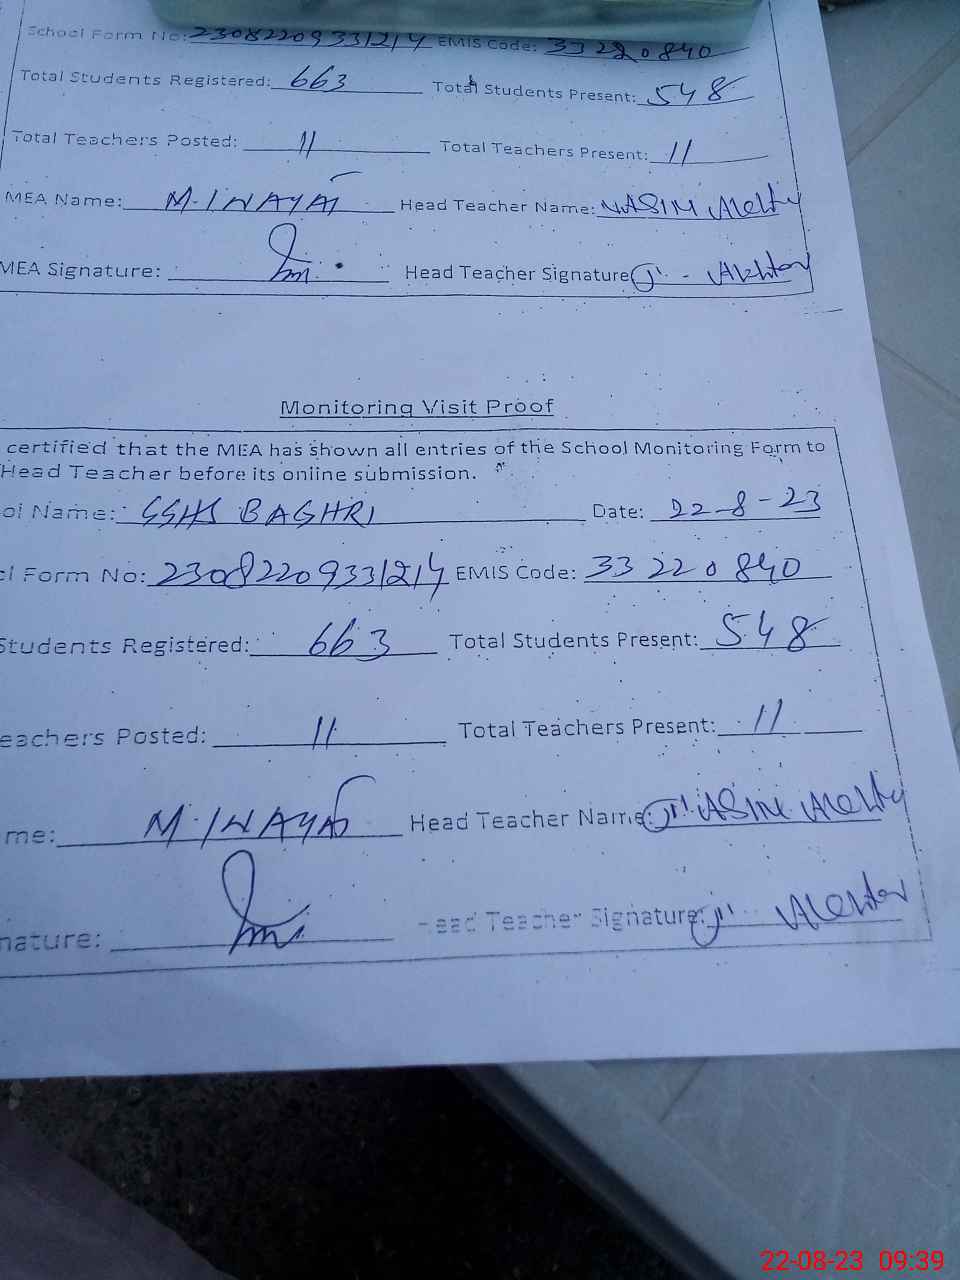 School Form No: 23082209331214 EMIS Code: 33220840
Total Students Registered: 663 Total Students Present: 548
Total Teachers Posted: 11 Total Teachers Present: 11
MEA Name: M. INAYAT Head Teacher Name: NASIM Akhtar
MEA Signature: Head Teacher Signature Akhtar
Monitoring Visit Proof
certified that the MEA has shown all entries of the School Monitoring Form to
Head Teacher before its online submission.
ol Name: GGHS BAGHRI Date: 22-8-23
ol Form No: 23082209331214 EMIS Code: 33220840
Students Registered: 663 Total Students Present: 548
eachers Posted: 11 Total Teachers Present: 11
me: M. INAYAT Head Teacher Name: NASIM Akhtar
nature: Head Teacher Signature: Akhtar
22-08-23 09:39